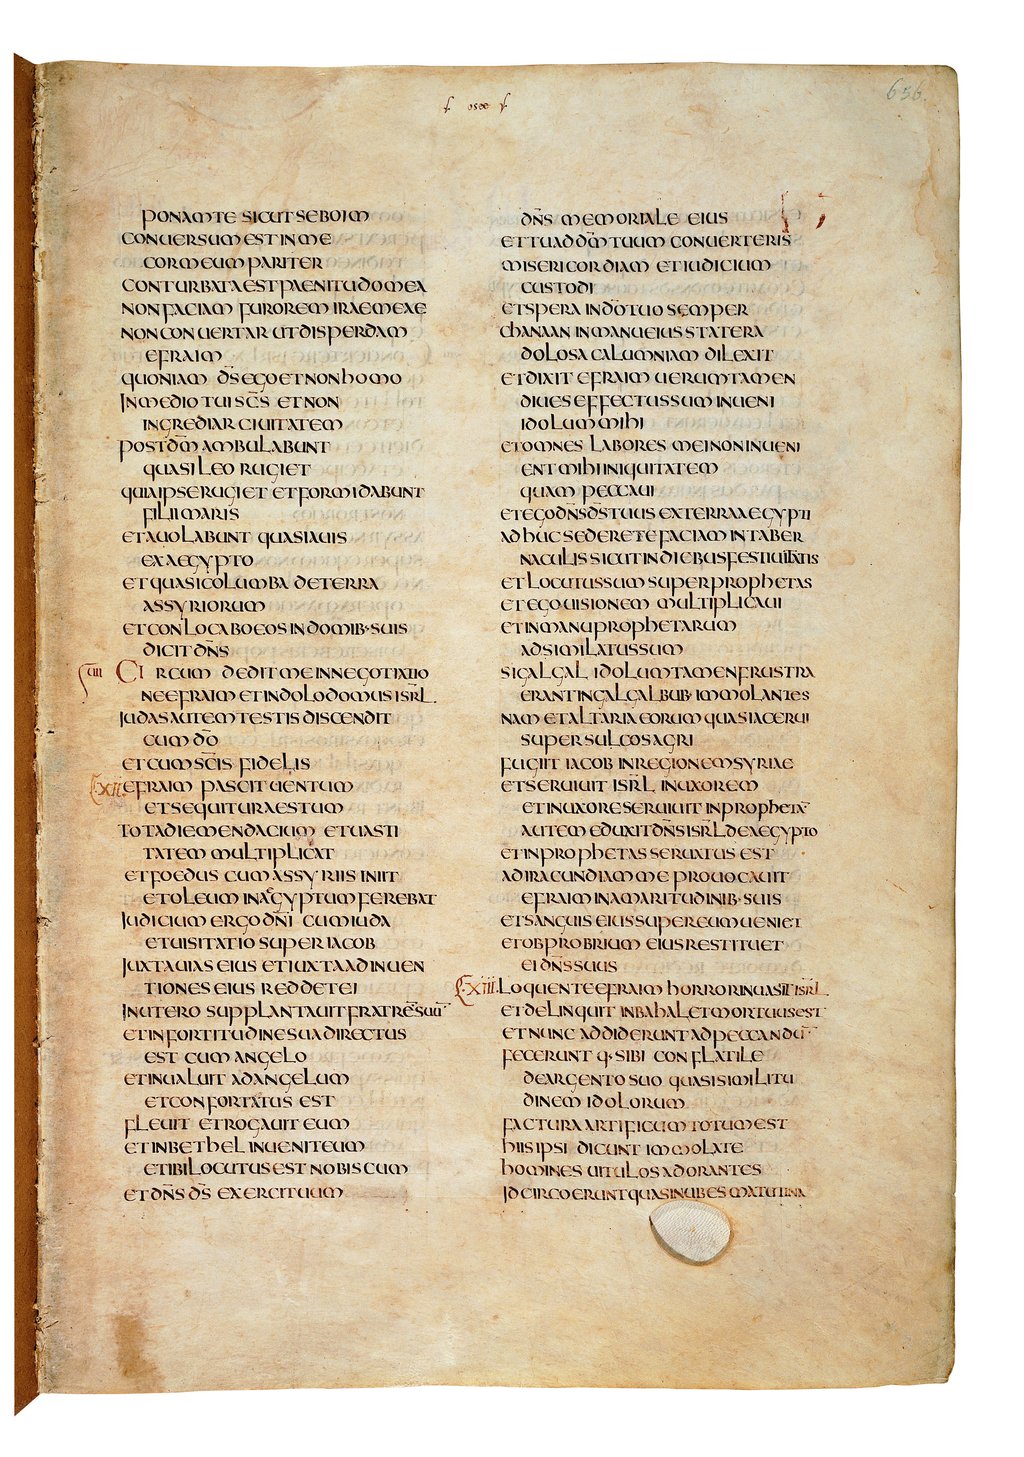 osee
656.
PONAM TE SICUT SEBOIM
CONUERSUM EST IN ME
COR MEUM PARITER
CONTURBATA EST PAENITUDO MEA
NON FACIAM FUROREM IRAE MEAE
NON CONUERTAR UT DISPERDAM
EFRAIM
QUONIAM D̅S̅ EGO ET NON HOMO
IN MEDIO TUI SC̅S̅ ET NON
INGREDIAR CIUITATEM
POST DN̅M AMBULABUNT
QUASI LEO RUGIET
QUIA IPSE RUGIET ET FORMIDABUNT
FILII MARIS
ET AUOLABUNT QUASI AUIS
EX AEGYPTO
ET QUASI COLUMBA DE TERRA
ASSYRIORUM
ET CONLOCABO EOS IN DOMIB· SUIS
DICIT DN̅S
CIRCUMDEDIT ME IN NEGOTIATIO
NE EFRAIM ET IN DOLO DOMUS ISRL̅.
IUDAS AUTEM TESTIS DISCENDIT
CUM D̅O̅
ET CUM SC̅IS FIDELIS
XII EFRAIM PASCIT UENTUM
ET SEQUITUR AESTUM
TOTA DIE MENDACIUM ET UASTI
TATEM MULTIPLICAT
ET FOEDUS CUM ASSYRIIS INIIT
ET OLEUM IN AEGYPTUM FEREBAT
IUDICIUM ERGO DN̅I CUM IUDA
ET UISITATIO SUPER IACOB
IUXTA UIAS EIUS ET IUXTA ADINUEN
TIONES EIUS REDDET EI
IN UTERO SUPPLANTAUIT FRATRE̅ SUU̅
ET IN FORTITUDINE SUA DIRECTUS
EST CUM ANGELO
ET INUALUIT AD ANGELUM
ET CONFORTATUS EST
FLEUIT ET ROGAUIT EUM
ET IN BETHEL INUENIT EUM
ET IBI LOCUTUS EST NOBISCUM
ET DN̅S D̅S̅ EXERCITUUM
DN̅S MEMORIALE EIUS
ET TU AD DM̅ TUUM CONUERTERIS
MISERICORDIAM ET IUDICIUM
CUSTODI
ET SPERA IN DO̅ TUO SEMPER
CHANAAN IN MANU EIUS STATERA
DOLOSA CALUMNIAM DILEXIT
ET DIXIT EFRAIM UERUMTAMEN
DIUES EFFECTUS SUM INUENI
IDOLUM MIHI
ET OMNES LABORES MEI NON INUENI
ENT MIHI INIQUITATEM
QUAM PECCAUI
ET EGO DN̅S D̅S̅ TUUS EX TERRA AEGYPTI
ADHUC SEDERE TE FACIAM IN TABER
NACULIS SICUT IN DIEBUS FESTIUITATIS
ET LOCUTUS SUM SUPER PROPHETAS
ET EGO UISIONEM MULTIPLICAUI
ET IN MANU PROPHETARUM
ADSIMILATUS SUM
SI GALGAL IDOLUM TAMEN FRUSTRA
ERANT IN GALGAL BUB· IMMOLANTES
NAM ET ALTARIA EORUM QUASI ACERUI
SUPER SULCOS AGRI
FUGIIT IACOB IN REGIONEM SYRIAE
ET SERUIUIT ISRL̅ IN UXOREM
ET IN UXORE SERUIUIT IN PROPHETA
AUTEM EDUXIT DN̅S ISRL̅ DE AEGYPTO
ET IN PROPHETA SERUATUS EST
AD IRACUNDIAM ME PROUOCAUIT
EFRAIM IN AMARITUDINIB· SUIS
ET SANGUIS EIUS SUPER EUM UENIET
ET OBPROBRIUM EIUS RESTITUET
EI DN̅S SUUS
XIII. LOQUENTE EFRAIM HORROR INUASIT ISRL̅
ET DELINQUIT IN BAHAL ET MORTUUS EST
ET NUNC ADDIDERUNT AD PECCANDU̅
FECERUNT Q· SIBI CONFLATILE
DE ARGENTO SUO QUASI SIMILITU
DINEM IDOLORUM
FACTURA ARTIFICUM TOTUM EST
HIIS IPSI DICUNT IMMOLATE
HOMINES UITULOS ADORANTES
IDCIRCO ERUNT QUASI NUBES MATUTINA